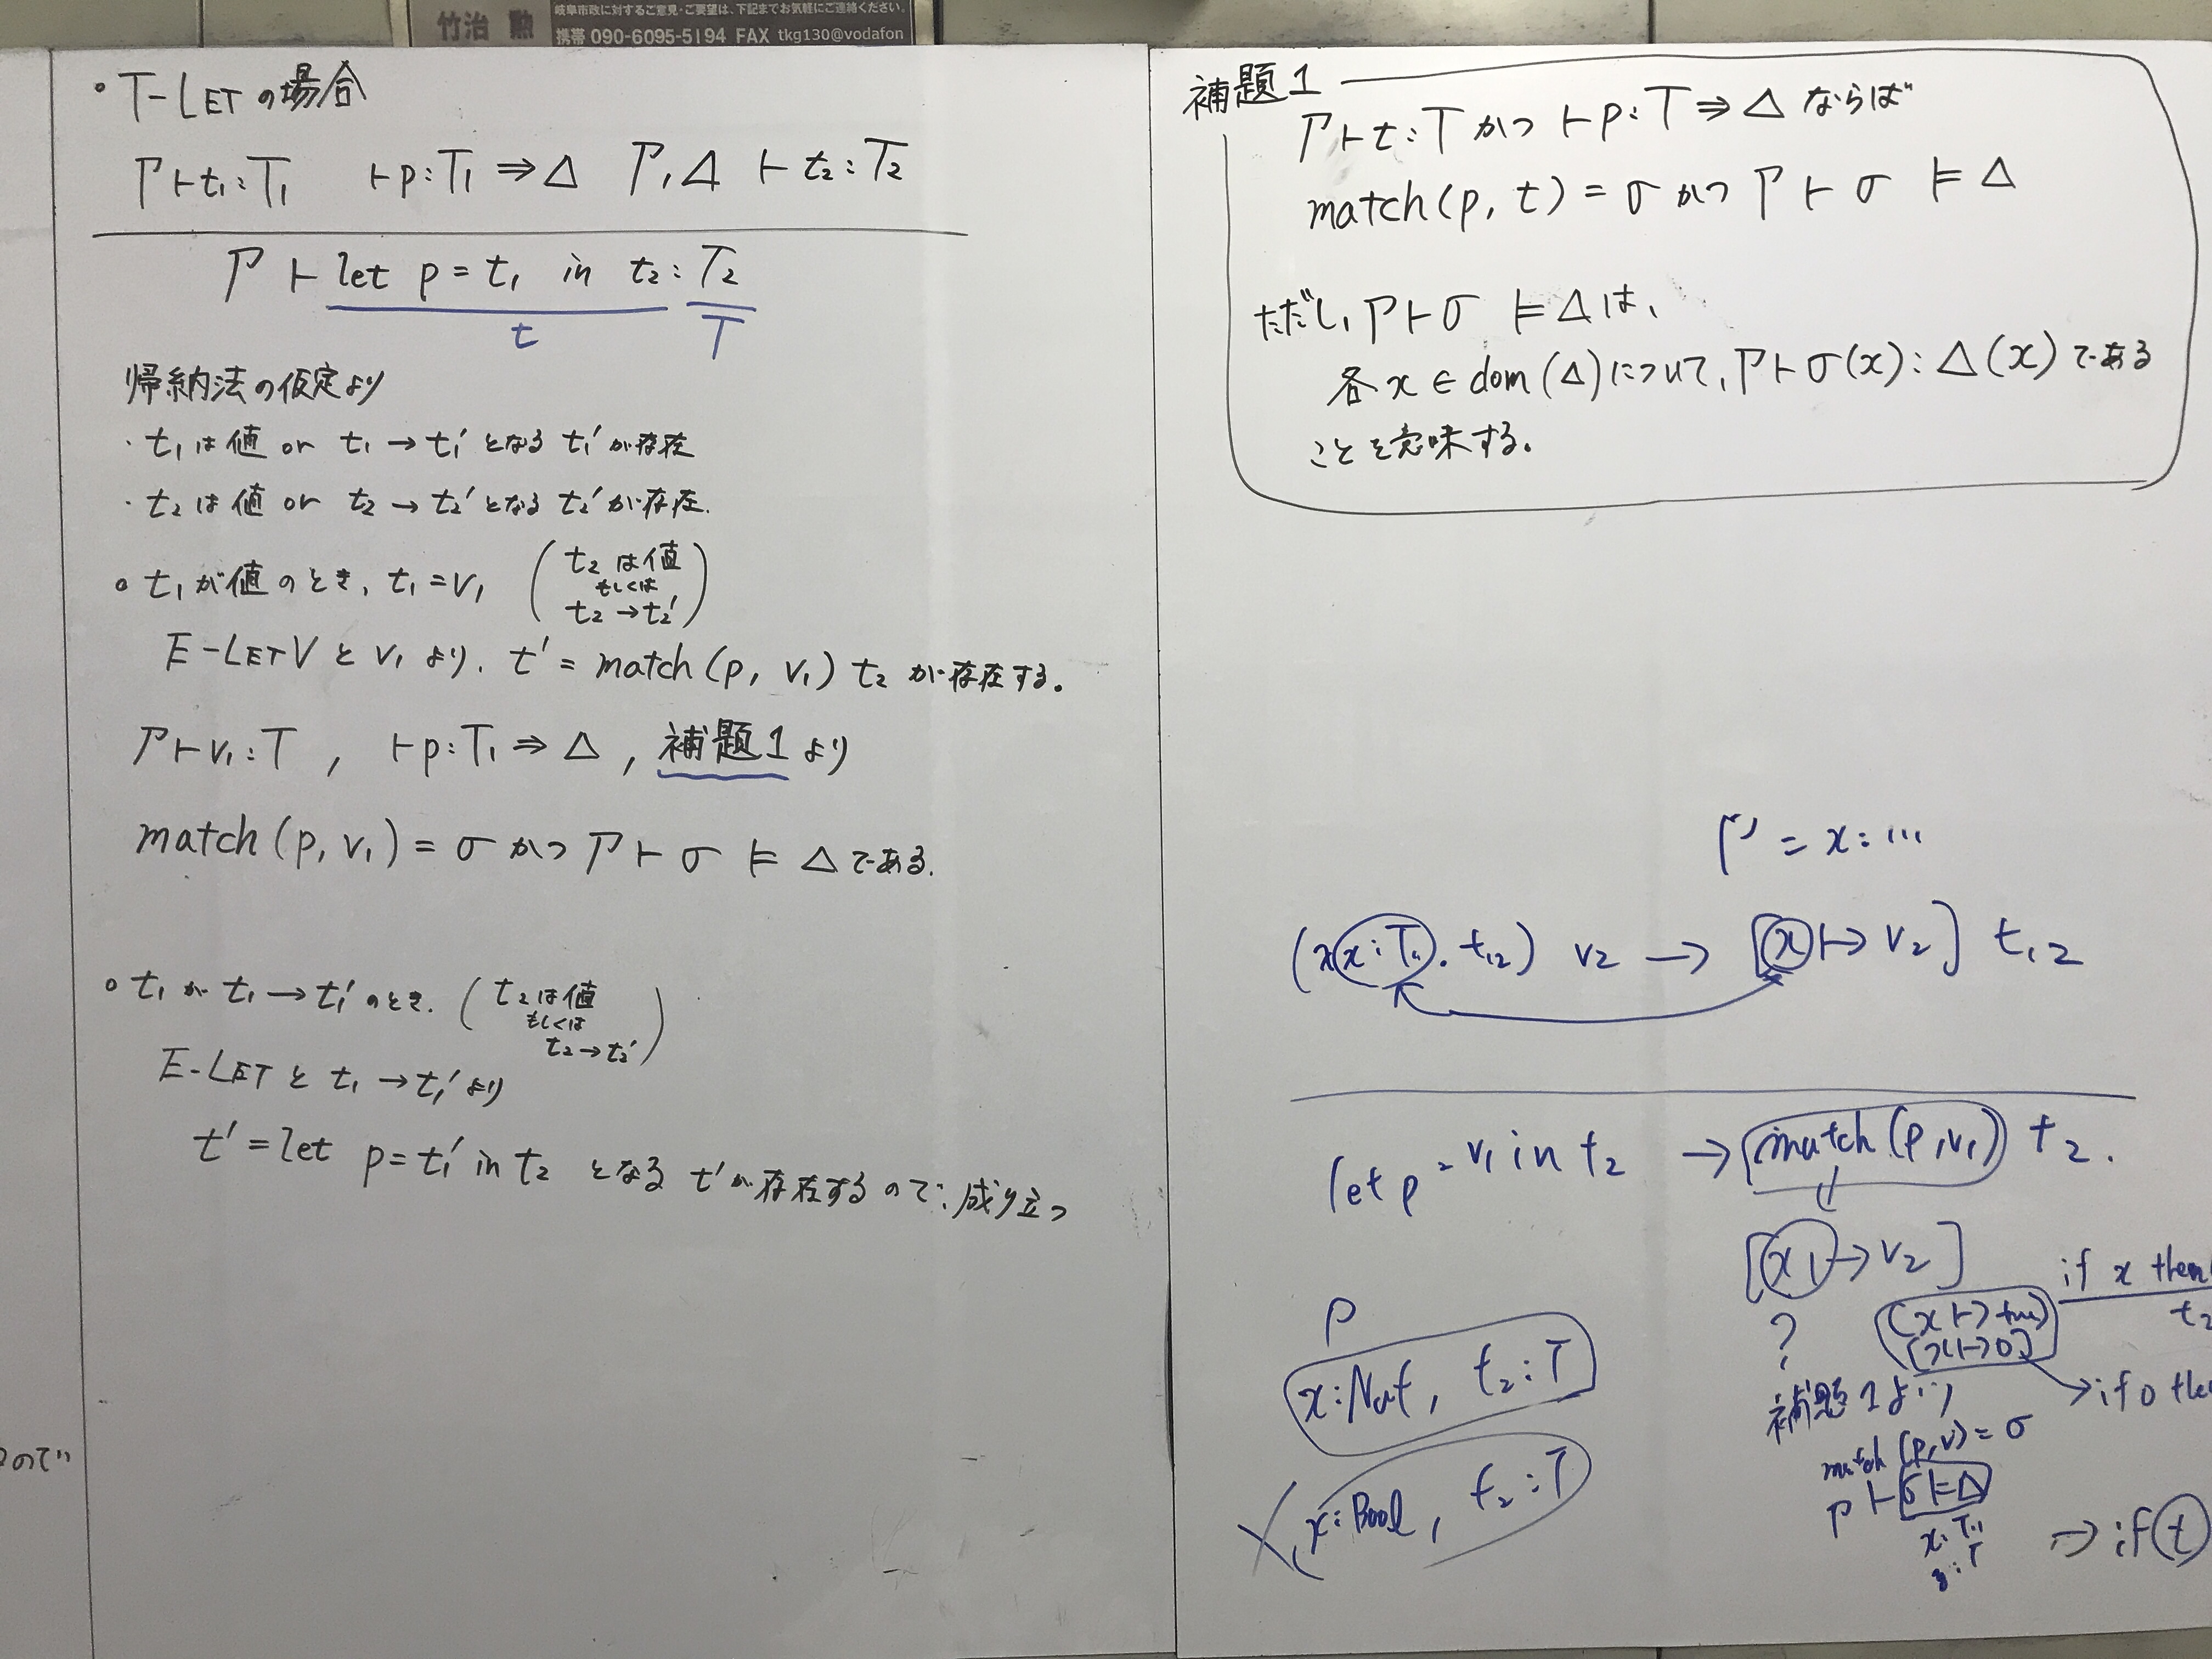 竹治 勲
岐阜市政に対するご意見・ご要望は、下記までお気軽にご連絡ください。
携帯 090-6095-5194 FAX tkg130@vodafon
・T-LETの場合
Γ⊢t₁:T₁ ⊢p:T₁⇒Δ Γ,Δ⊢t₂:T₂
Γ⊢let p=t₁ in t₂:T₂
t T
帰納法の仮定より
・t₁は値 or t₁→t₁'となる t₁'が存在
・t₂は値 or t₂→t₂'となる t₂'が存在.
○t₁が値のとき, t₁=v₁ (t₂は値 もしくは t₂→t₂')
E-LETVとv₁より. t'=match(p, v₁) t₂ が存在する。
Γ⊢v₁:T, ⊢p:T₁⇒Δ, 補題1より
match(p, v₁)=σ かつ Γ⊢σ⊨Δ である.
○t₁が t₁→t₁'のとき. (t₂は値 もしくは t₂→t₂')
E-LETと t₁→t₁'より
t'=let p=t₁' in t₂ となる t'が存在するので成り立つ
のでい
補題1
Γ⊢t:T かつ ⊢p:T⇒Δ ならば
match(p, t)=σ かつ Γ⊢σ⊨Δ
ただし, Γ⊢σ⊨Δは,
各x∈dom(Δ)について, Γ⊢σ(x):Δ(x)である
ことを意味する。
Γ=x:…
(λx:T₁₁. t₁₂) v₂→[x↦v₂] t₁₂
let p=v₁ in t₂→match(p,v₁) t₂.
[x₁→v₂]
?
if x then
t₂
(x↦true)
[x↦0]
→if 0 the
補題1より
match(p,v)=σ
Γ⊢σ⊨Δ
x:T₁₁
y:T
→if t
Γ
x:Nat, t₂:T
x:Bool, t₂:T